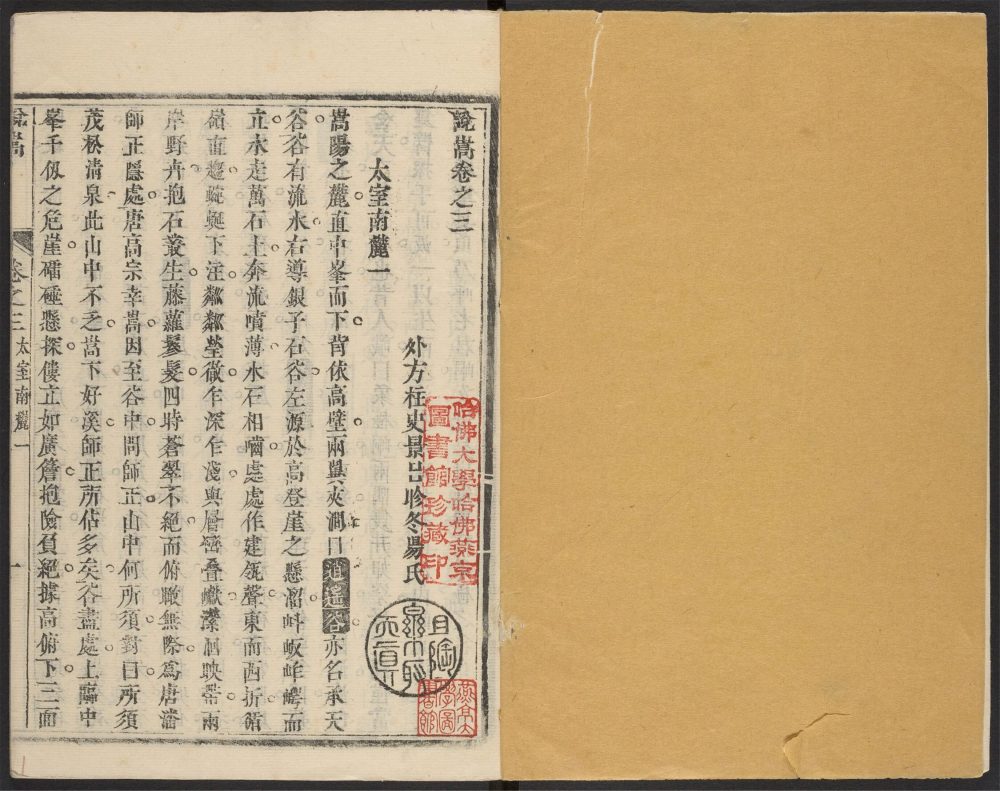 說嵩卷之三
外方柱史景日昣冬暘氏
太室南麓一
嵩陽之麓直中峯而下背依高壁兩巽夾澗曰逍遙谷亦名承天
谷谷有流水右導銀子石谷左源於高登崖之懸溜㟁岅岝崿而
立水走萬石上奔流噴薄水石相嚙處處作建瓴聲東而西折循
嶺直趨蜿蜒下注粼粼瑩徹乍深乍淺與層巒叠巘瀠洄映帶兩
岸野卉抱石叢生藤蘿鬖髿四時蒼翠不絕而俯瞰無際爲唐潘
師正隱處唐高宗幸嵩因至谷中問師正山中何所須對曰所須
茂松清泉此山中不乏嵩下好溪師正所佔多矣谷盡處上臨中
峯千仭之危崖礌硾懸探僂立如廣簷抱險負絕據高俯下三面
說嵩
卷之三 太室南麓一
一
哈佛大學哈佛燕京
圖書館珍藏印